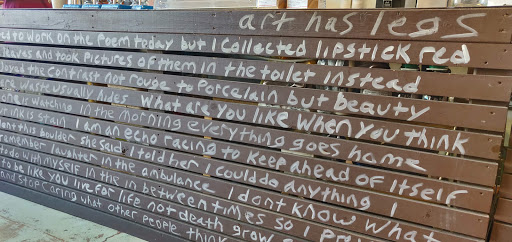 art has legs
ed to work on the poem today but I collected lipstick red
leaves and took pictures of them in the toilet instead
loved the contrast not rouge to porcelain but beauty
re waste usually rides What are you like when you think
one is watching In the morning everything goes home
ur ink is stain I am an echo racing to keep ahead of itself
this boulder she said I told her I could do anything I
remember laughter in the ambulance I dont know what
to do with myself in the in between times so I pr
to be like you live for life not death grow
and stop caring what other people think